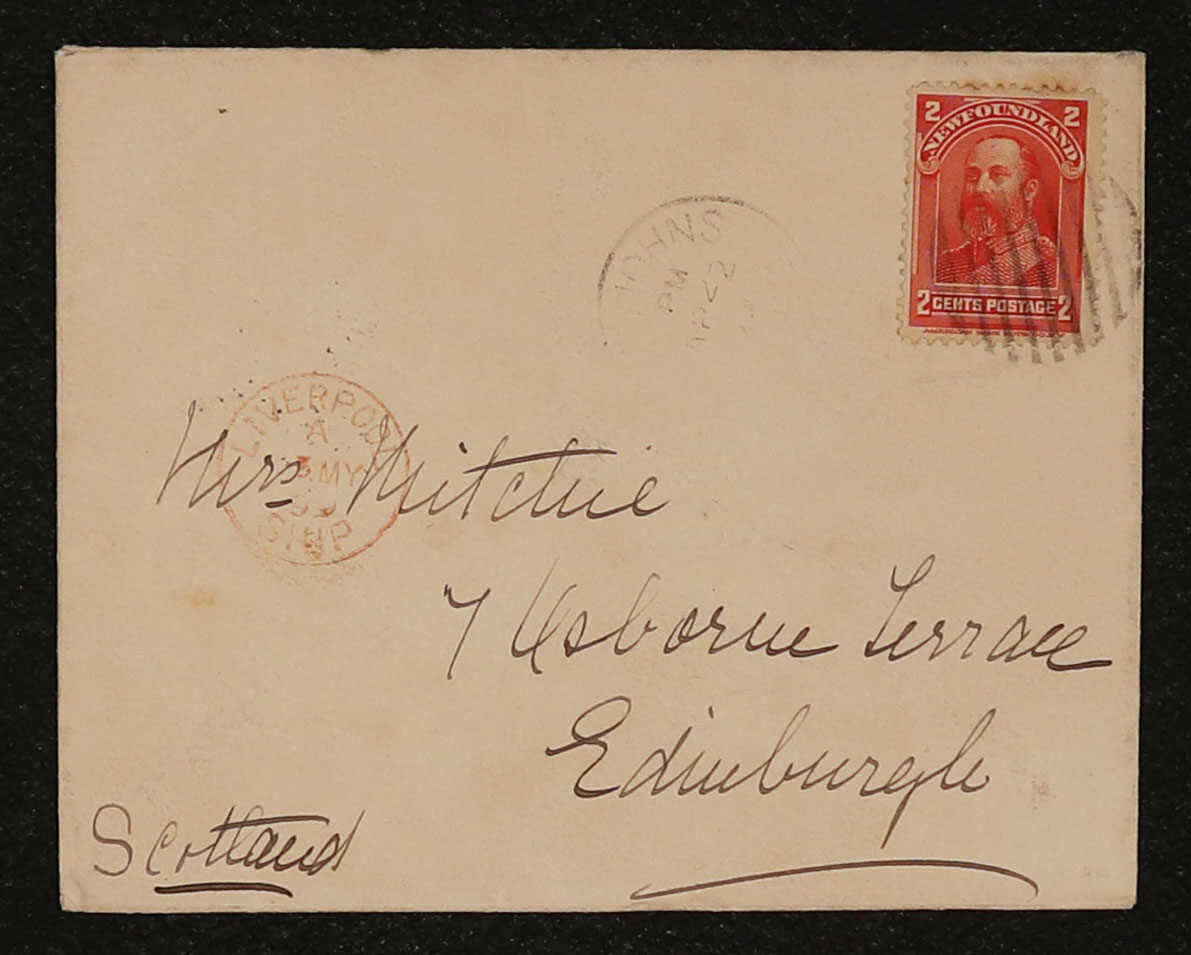 2 NEWFOUNDLAND 2
2 CENTS POSTAGE 2
JOHNS
PM
AP 22
LIVERPOOL
A
MY
SHIP
Mrs Mitchie
7 Osborne Terrace
Edinburgh
Scotland